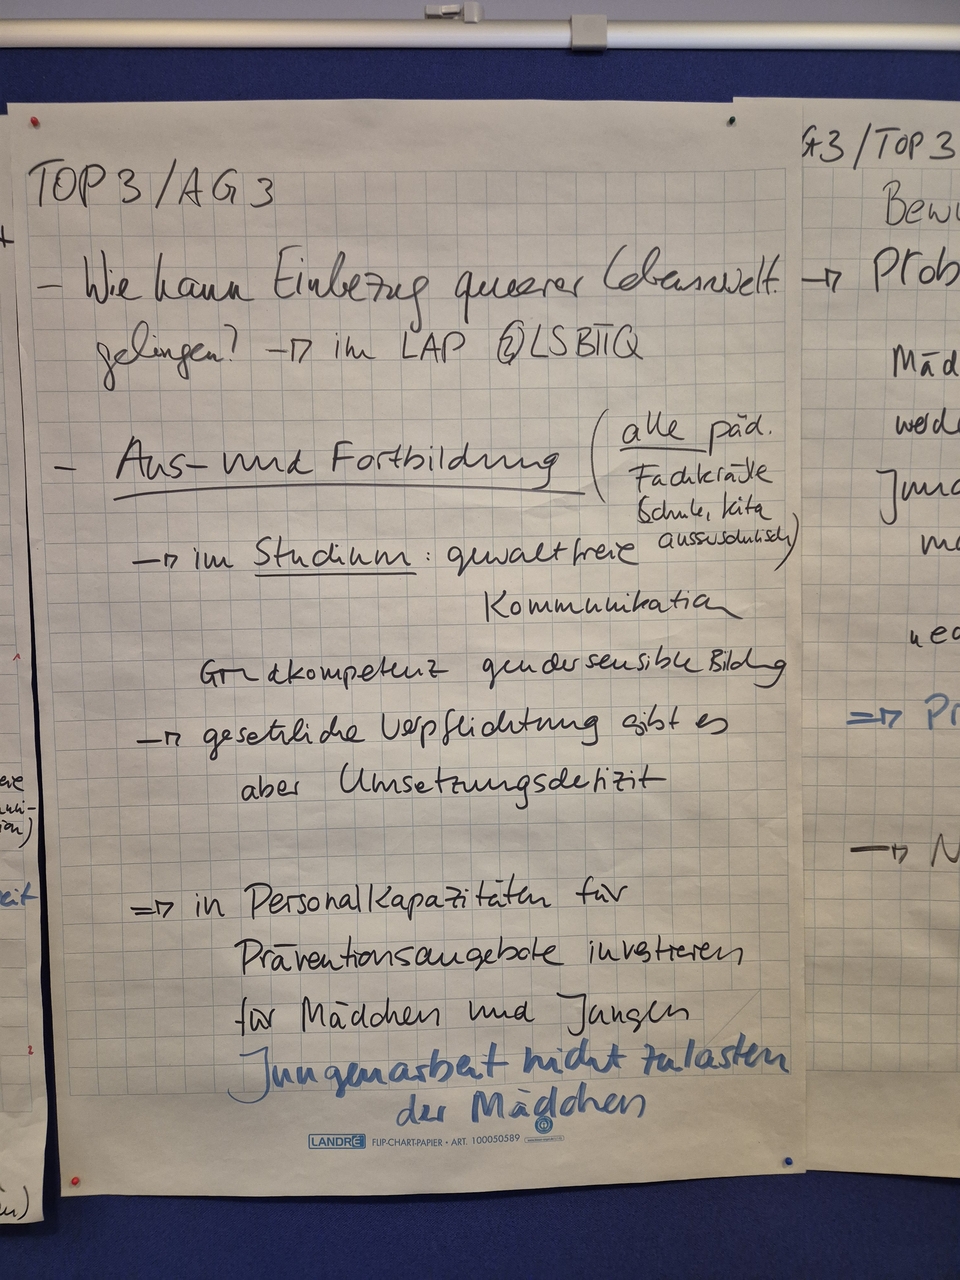 TOP 3 / AG 3
- Wie kann Einbezug queerer Lebenswelt.
gelingen? → im LAP LSBTIQ
- Aus- und Fortbildung
(alle päd.
Fachkräfte
Schule, Kita
ausserschulisch)
→ im Studium: gewaltfreie
Kommunikation
Grundkompetenz gendersensible Bildung
→ gesetzliche Verpflichtung gibt es
aber Umsetzungsdefizit
⇒ in Personalkapazitäten für
Präventionsangebote investieren
für Mädchen und Jungen
Jungenarbeit nicht zulasten
der Mädchen
LANDRÉ FLIP-CHART-PAPIER • ART. 100050589
G3 / TOP 3
Bewu
→ Prob
Mäd
werde
Jung
ma
neg
⇒ Pr
→ N